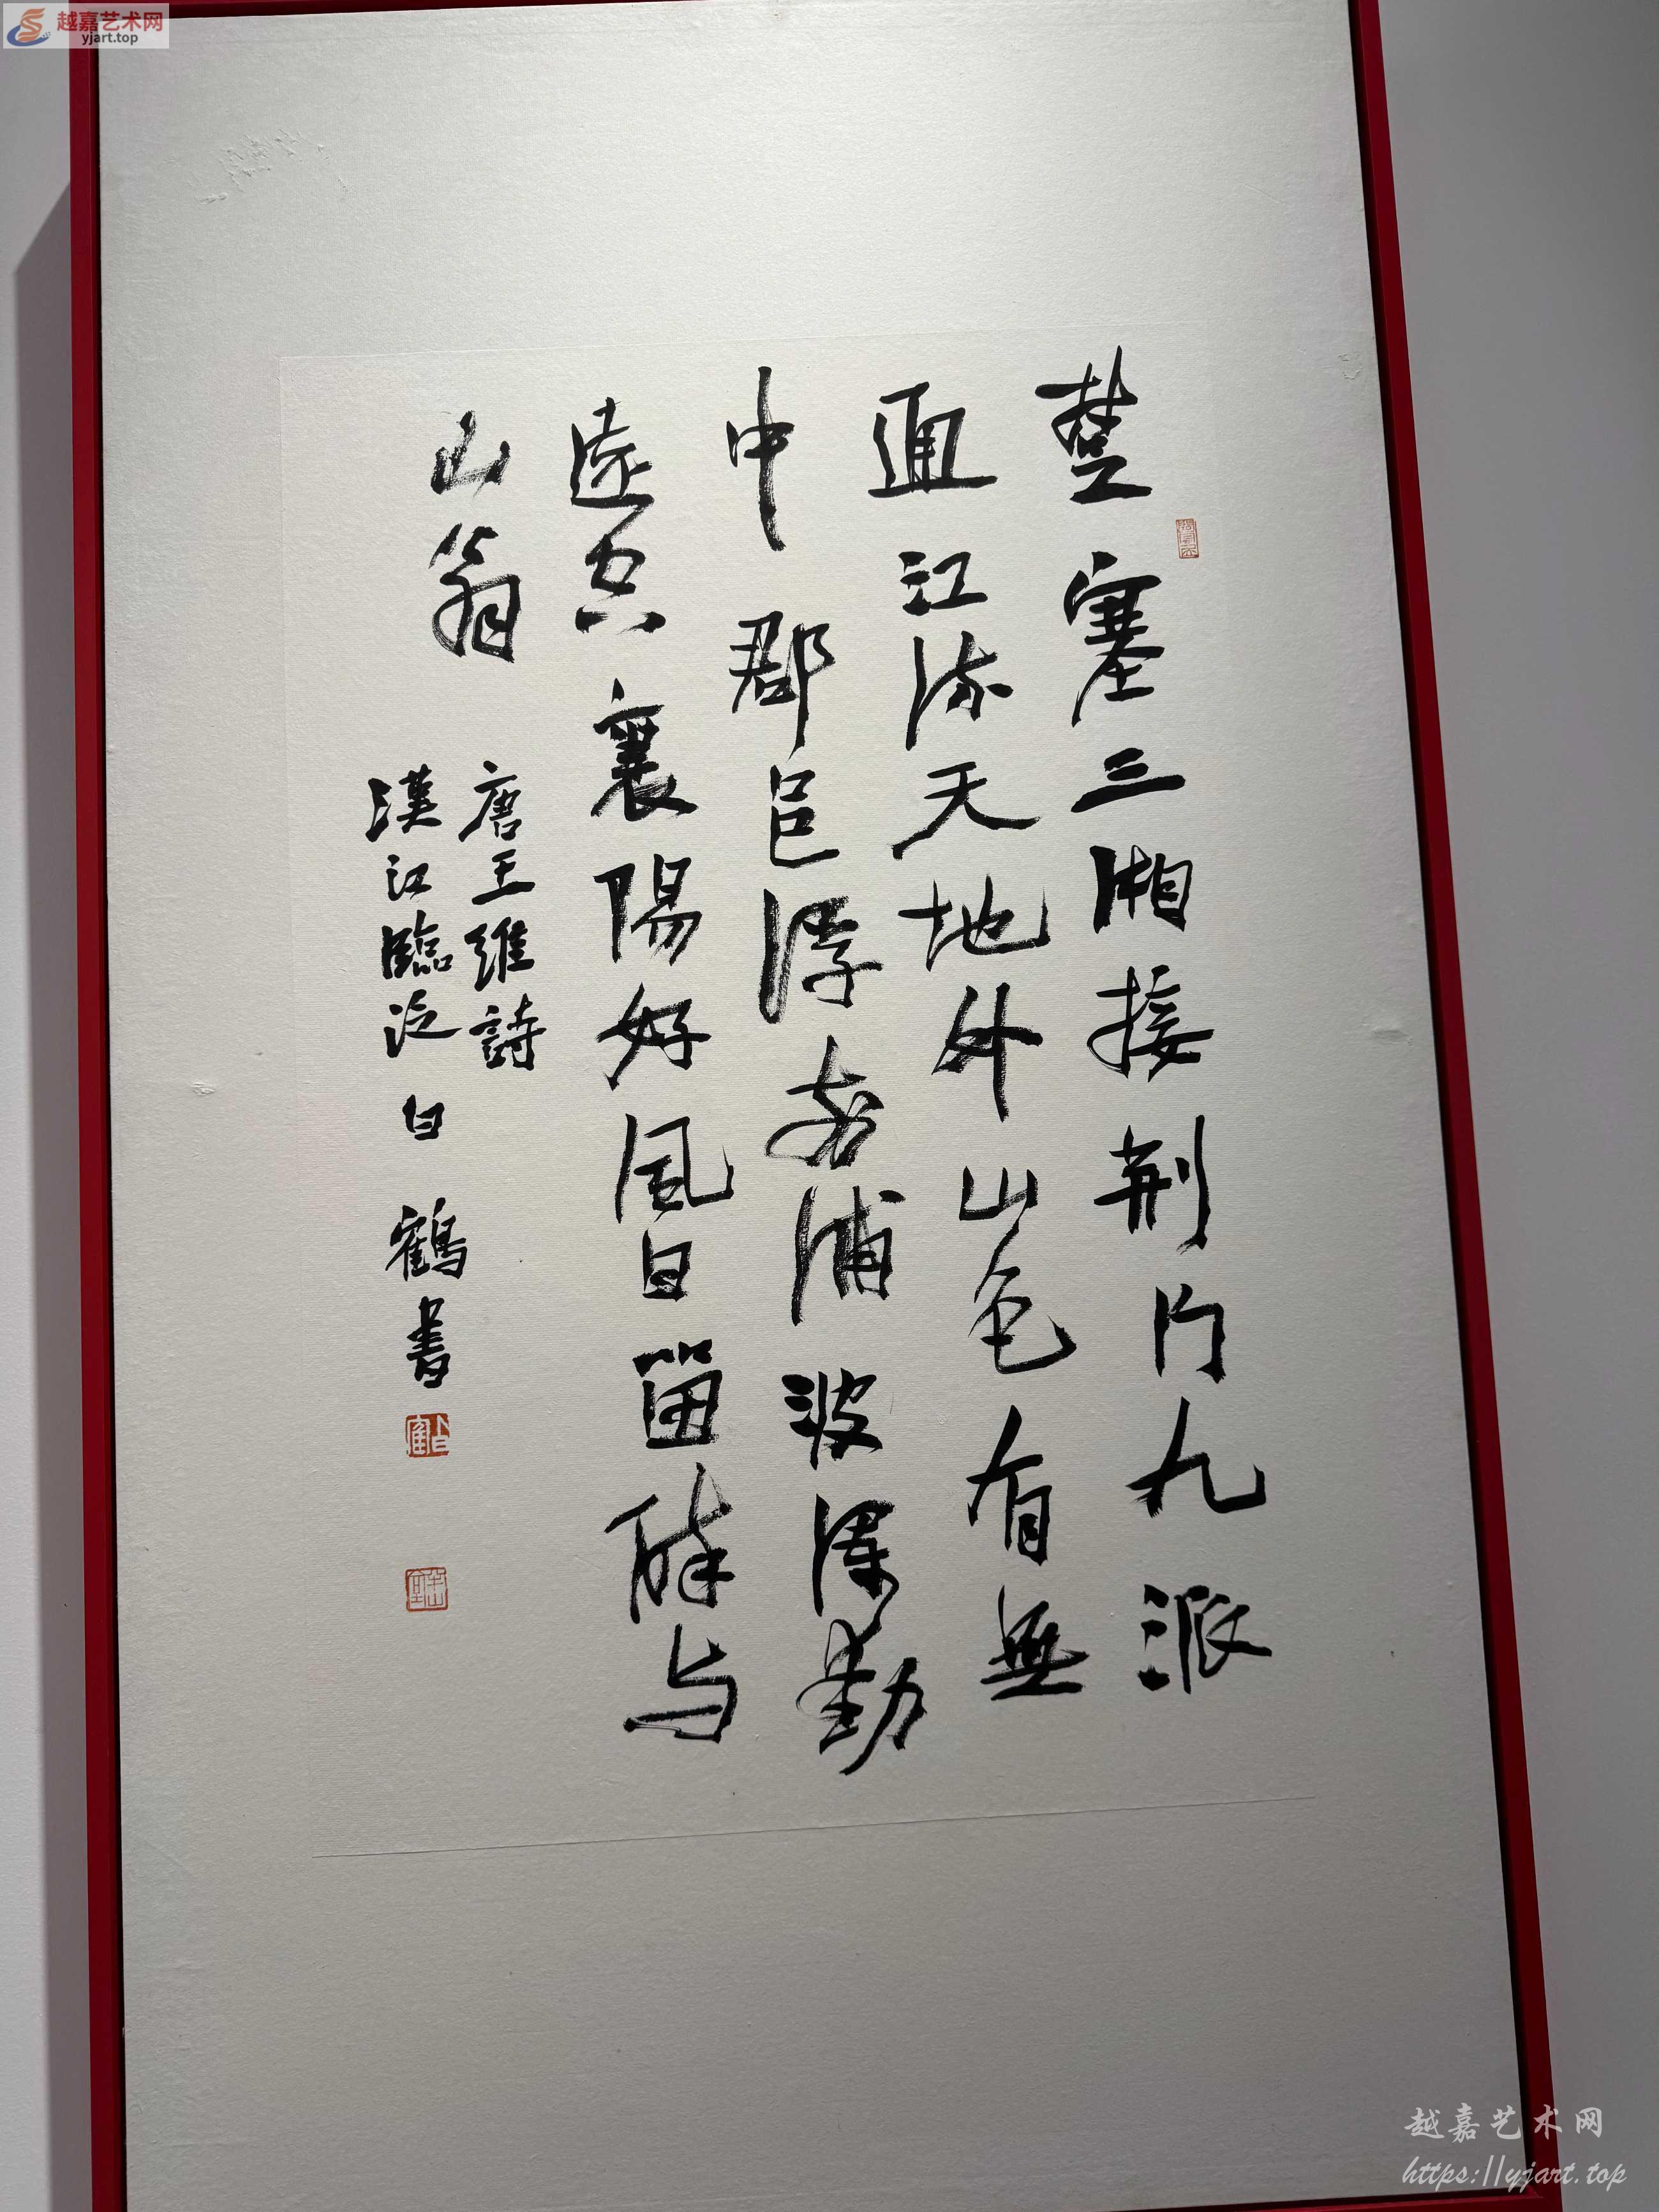 越嘉艺术网
yjart.top
楚塞三湘接荆门九派
通江流天地外山色有無
中郡邑浮前浦波瀾動
遠空襄陽好風日留醉与
山翁
唐王維詩
漢江臨泛白鶴書
越嘉艺术网
https://yjart.top